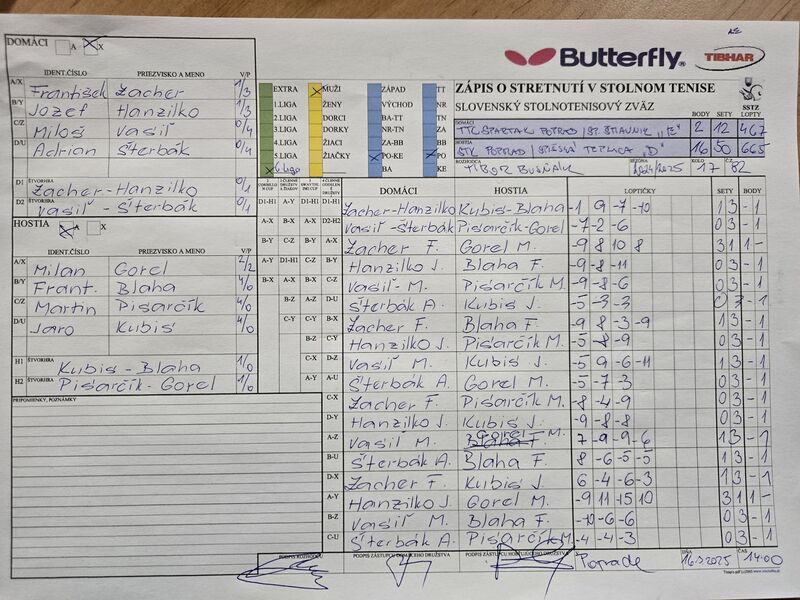 DOMÁCI A X
Butterfly TIBHAR
IDENT.ČÍSLO PRIEZVISKO A MENO V/P
A/X František Žacher 1/3
B/Y Jozef Hanzilko 1/3
C/Z Miloš Vasiľ 0/4
D/U Adrian Šterbák 0/4
D1 ŠTVORHRA Žacher-Hanzilko 0/1
D2 ŠTVORHRA Vasiľ - Šterbák 0/1
EXTRA MUŽI ZÁPAD TT
1.LIGA ŽENY VÝCHOD NR
2.LIGA DORCI BA-TT TN
3.LIGA DORKY NR-TN ZA
4.LIGA ŽIACI ZA-BB BB
5.LIGA ŽIAČKY PO-KE PO
6.liga BA KE
ZÁPIS O STRETNUTÍ V STOLNOM TENISE
SLOVENSKÝ STOLNOTENISOVÝ ZVÄZ
SSTZ
BODY SETY LOPTY
DOMÁCI TTC SPARTAK POPRAD 2 12 467
HOSTIA STK POPRAD / SPIŠSKÁ TEPLICA "D" 16 50 665
ROZHODCA TIBOR SEZÓNA 2024/2025 KOLO 17 Č. 82
HOSTIA A X
IDENT.ČÍSLO PRIEZVISKO A MENO V/P
A/X Milan Gorel 2/2
B/Y Frant. Blaha 4/0
C/Z Martin Pisarčík 4/0
D/U Jaro Kubis 4/0
H1 ŠTVORHRA Kubis - Blaha 1/0
H2 ŠTVORHRA Pisarčík-Gorel 1/0
PRIPOMIENKY, POZNÁMKY
DOMÁCI HOSTIA LOPTIČKY SETY BODY
D1-H1 Žacher-Hanzilko Kubis-Blaha -1 9 -7 -10 1 3 - 1
D2-H2 Vasiľ-Šterbák Pisarčík-Gorel -7 -2 -6 0 3 - 1
A-X Žacher F. Gorel M. -9 8 10 8 3 1 1 -
B-Y Hanzilko J. Blaha F. -9 -8 -11 0 3 - 1
C-Z Vasiľ M. Pisarčík M. -9 -8 -6 0 3 - 1
D-U Šterbák A. Kubis J. -5 -3 -3 0 3 - 1
B-X Žacher F. Blaha F. -9 8 -3 -9 1 3 - 1
Hanzilko J. Pisarčík M. -5 -8 -9 0 3 - 1
D-Z Vasiľ M. Kubis J. -5 9 -6 -11 1 3 - 1
A-U Šterbák A. Gorel M. -5 -7 -3 0 3 - 1
C-X Žacher F. Pisarčík M. -8 -4 -9 0 3 - 1
D-Y Hanzilko J. Kubis J. -9 -8 -8 0 3 - 1
A-Z Vasiľ M. Gorel M. 7 -9 -9 -6 1 3 - 1
B-U Šterbák A. Blaha F. 8 -6 -5 -5 1 3 - 1
D-X Žacher F. Kubis J. 6 -4 -6 -3 1 3 - 1
A-Y Hanzilko J. Gorel M. -9 11 15 10 3 1 1 -
B-Z Vasiľ M. Blaha F. -10 -6 -6 0 3 - 1
C-U Šterbák A. Pisarčík M. -4 -4 -3 0 3 - 1
PODPIS ROZHODCU PODPIS ZÁSTUPCU DOMÁCEHO DRUŽSTVA PODPIS ZÁSTUPCU HOSŤUJÚCEHO DRUŽSTVA DŇA 16.3.2025 ČAS 14:00